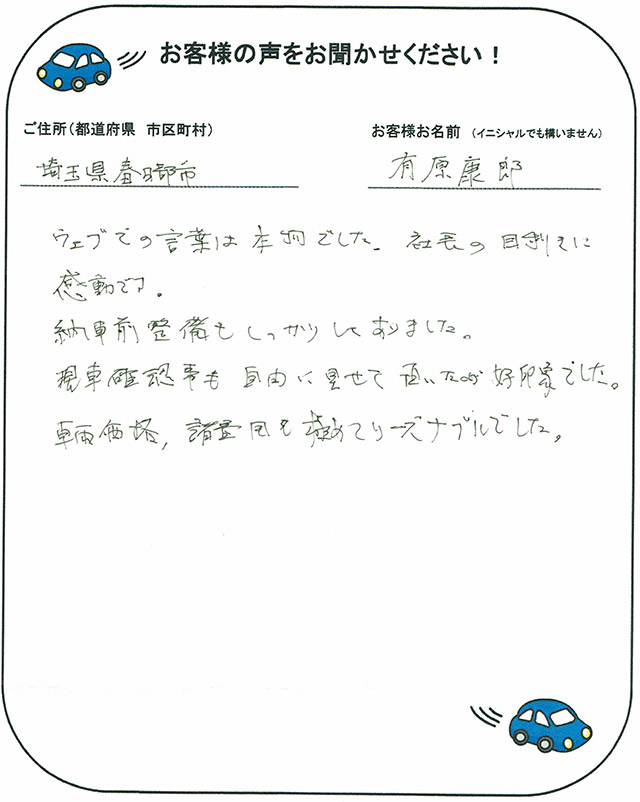 お客様の声をお聞かせください！
ご住所（都道府県 市区町村）
お客様お名前 （イニシャルでも構いません）
埼玉県春日部市
有原康郎
ウェブでの言葉は本物でした。社長の目利きに
感動です。
納車前整備もしっかりしてありました。
現車確認事も自由に見せて頂いたのが好印象でした。
車両価格，諸費用も極めてリーズナブルでした。